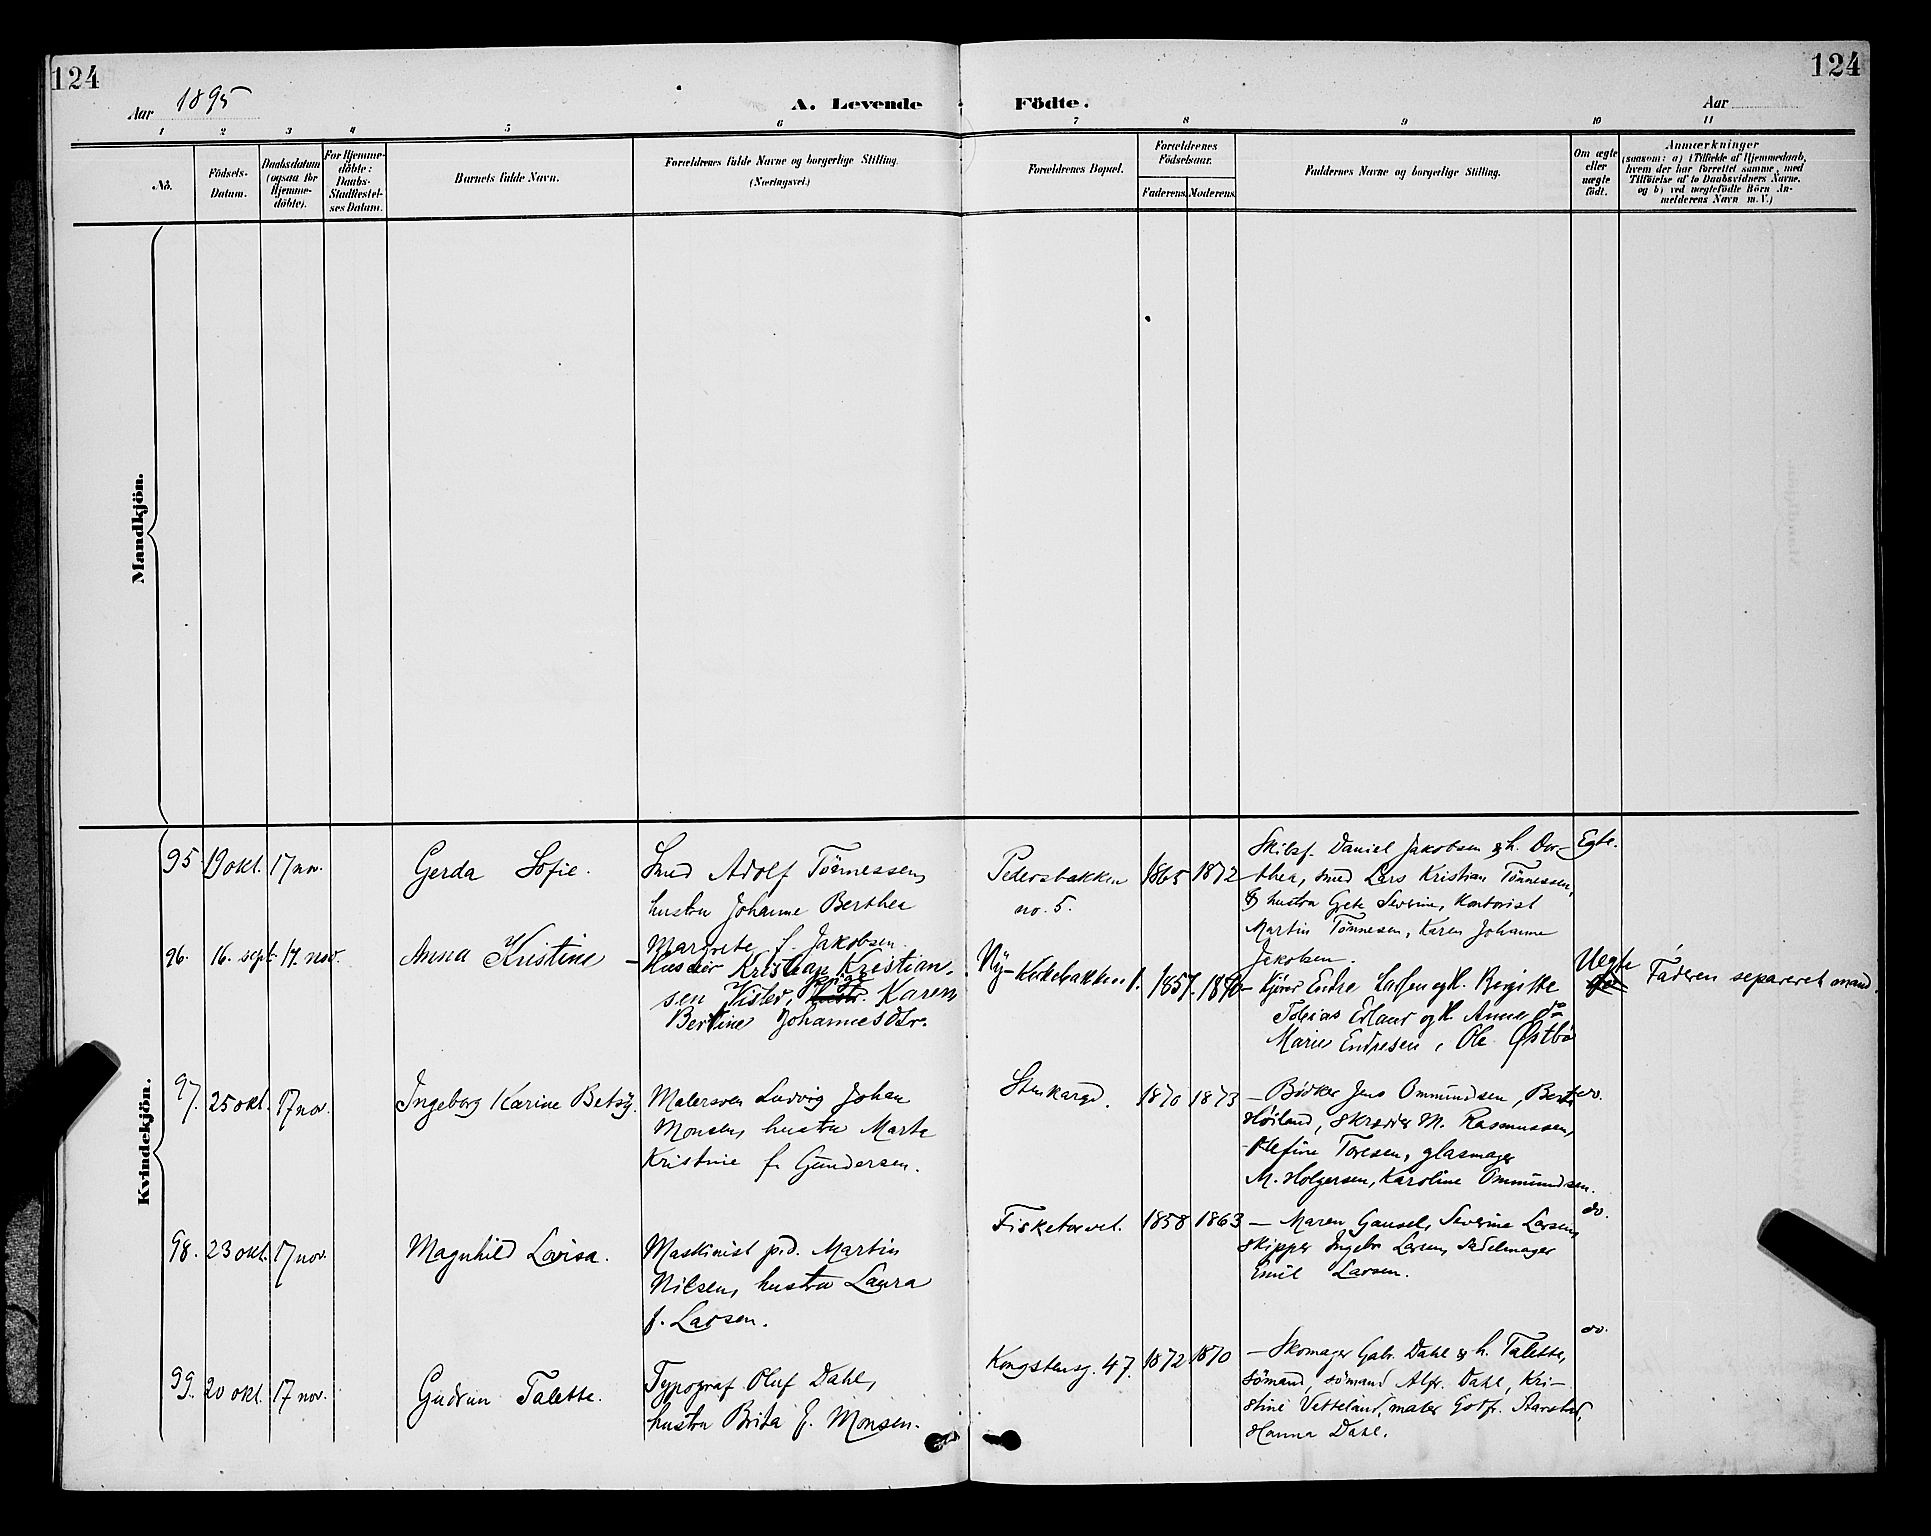 124
124
Aar 1895
A. Levende Födte.
Aar
1 2 3 4 5 6 7 8 9 10 11
No.
Födsels-
Datum.
Daabsdatum
(ogsaa for
Hjemme-
döbte).
For Hjemme-
döbte:
Daabs-
Stadfæstel-
ses Datum.
Barnets fulde Navn.
Forældrenes fulde Navne og borgerlige Stilling.
(Næringsvei.)
Forældrenes Bopæl.
Forældrenes
Födselsaar.
Faderens.
Moderens.
Faddernes Navne og borgerlige Stilling.
Om ægte
eller
uægte
födt.
Anmærkninger
(saasom: a) i Tilfælde af Hjemmedaab,
hvem der har forrettet samme, med
Tilföielse af to Daabsvidners Navne.
og b) ved uægtefödte Börn An-
melderens Navn m. V.)
Mandkjön.
Kvindekjön.
95 19 okt. 17 nov.
Gerda Sofie.
Smed Adolf Tönnessen,
hustru Johanne Berthea
Margrete f. Jakobsen.
Pedersbakken
no. 5.
1865 1872
Skibsf. Daniel Jakobsen & h. Dor-
thea, smed Lars Kristian Tönnessen,
& hustru Gete Severine, Kontorist
Martin Tönnesen, Karen Johanne
Jakobsen.
Egte.
96. 16. sept. 17. nov.
Anna Kristine
Kristian Kristian-
sen Kister, pige Karen
Bertine Johannesdtr.
Ny-Kirkebakken 1.
1857. 1870
Endre Larsen og h. Birgitte
Tobias Erland og h. Anna
Marie Endresen, Ole Østbö
Uegte
Faderen separeret mand.
97. 25 okt. 17 nov.
Ingeborg Karine Betsy.
Malersven Ludvig Johan
Monsen, hustru Marta
Kristine f. Gundersen.
Stenkargd.
1870 1873
- Bödker Jens Ommundsen, Berta
Höiland, skræder M. Rasmussen,
Toresen, glasmager
M. Holgersen, Karoline Ommundsen.
do.
98. 23 okt. 17 nov.
Magnhild Lovisa.
Maskinist Martin
Nilsen, hustru Laura
f. Larsen.
Fisketorvet.
1858 1863
- Maren Gausel, Severine Larsen,
skipper Ingebr Larsen, sadelmager
Emil Larsen.
do.
99. 20 okt. 17 nov.
Gudrun Talette.
Typograf Oluf Dahl,
hustru Brita f. Monsen.
Kongstensg. 47.
1872 1870
- Skomager Gabr. Dahl & h. Talette,
sömand, sömand Alfr. Dahl, Kri-
stine Vetteland, maler Gotfr. Aarstad,
Hanna Dahl.
do.